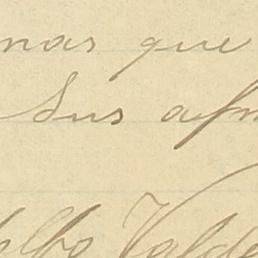 mas que
Sus afm
olfo Valde